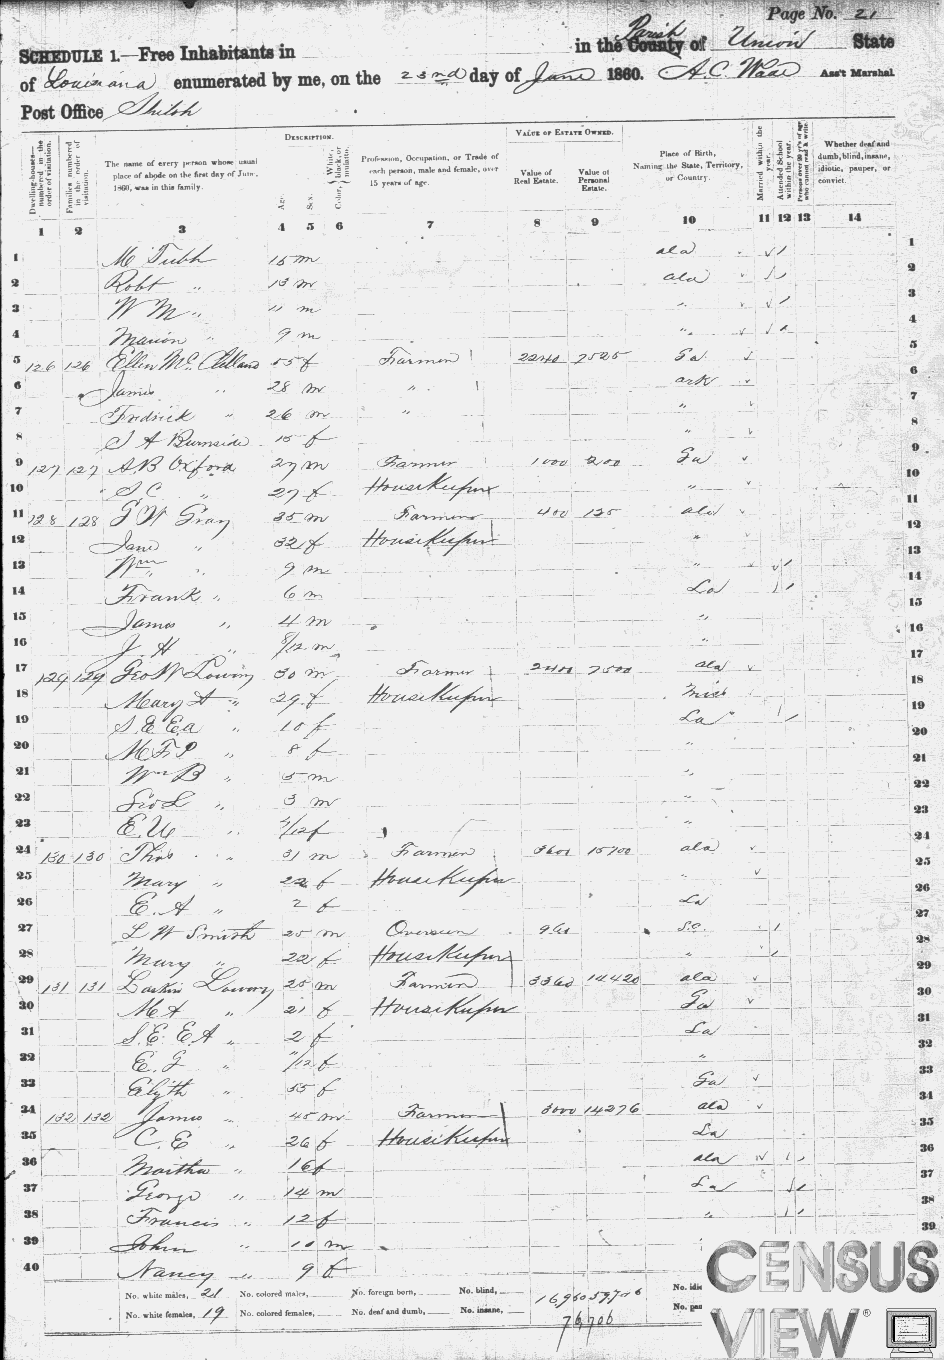 Page No. 21
SCHEDULE 1.—Free Inhabitants in in the County Parish of Union State
of Louisiana enumerated by me, on the 23rd day of June 1860. A.C. Wade Ass't Marshal
Post Office Shiloh
Dwelling-houses numbered in the order of visitation.
Families numbered in the order of visitation.
The name of every person whose usual place of abode on the first day of June, 1860, was in this family.
DESCRIPTION.
Age
Sex
Color, White, black, or mulatto.
Profession, Occupation, or Trade of each person, male and female, over 15 years of age.
VALUE OF ESTATE OWNED.
Value of Real Estate.
Value of Personal Estate.
Place of Birth, Naming the State, Territory, or Country.
Married within the year.
Attended School within the year.
Persons over 20 y'rs of age who cannot read & write.
Whether deaf and dumb, blind, insane, idiotic, pauper, or convict.
1 2 3 4 5 6 7 8 9 10 11 12 13 14
1 M Tubb 15 m ala 1
2 Robt " 13 m ala 2
3 W M " 11 m " 3
4 Marion " 9 m " 4
5 126 126 Ellen McClelland 55 f Farmer 2240 7525 Ga 5
6 James " 28 m " ark 6
7 Fredrick " 26 m " " 7
8 S A Burnside 15 f " 8
9 127 127 A B Oxford 27 m Farmer 1000 200 Ga 9
10 S. C " 27 f HouseKeeper " 10
11 128 128 G W Gray 35 m Farmer 400 125 ala 11
12 Jane " 32 f HouseKeeper " 12
13 Wm " 9 m " 13
14 Frank " 6 m La 14
15 James " 4 m " 15
16 J. H " 8/12 m " 16
17 129 129 Geo W Lowery 30 m Farmer 2400 7500 ala 17
18 Mary A " 29 f HouseKeeper Miss 18
19 S. E. E a " 10 f La 19
20 M F P " 8 f " 20
21 Wm B " 5 m " 21
22 Geo L " 3 m " 22
23 E. U " 7/12 f " 23
24 130 130 Thos " 31 m Farmer 3600 15700 ala 24
25 Mary " 22 f HouseKeeper " 25
26 E. A " 2 f La 26
27 L W Smith 25 m Overseer 960 S.C. 27
28 Mary " 22 f HouseKeeper " 28
29 131 131 Larkin Lowery 25 m Farmer 3360 14420 ala 29
30 M A " 21 f HouseKeeper Ga 30
31 S. E. E A " 2 f La 31
32 E. J " /12 f " 32
33 Elyth " 55 f Ga 33
34 132 132 James " 45 m Farmer 3000 14276 ala 34
35 C. E " 26 f HouseKeeper La 35
36 Martha " 16 f ala 36
37 George " 14 m La 37
38 Francis " 12 f " 38
39 John " 10 m 39
40 Nancy " 9 f
No. white males, 21 No. colored males, No. foreign born, No. blind, No. idi
No. white females, 19 No. colored females, No. deaf and dumb, No. insane, No. pau
76706
CENSUS
VIEW®